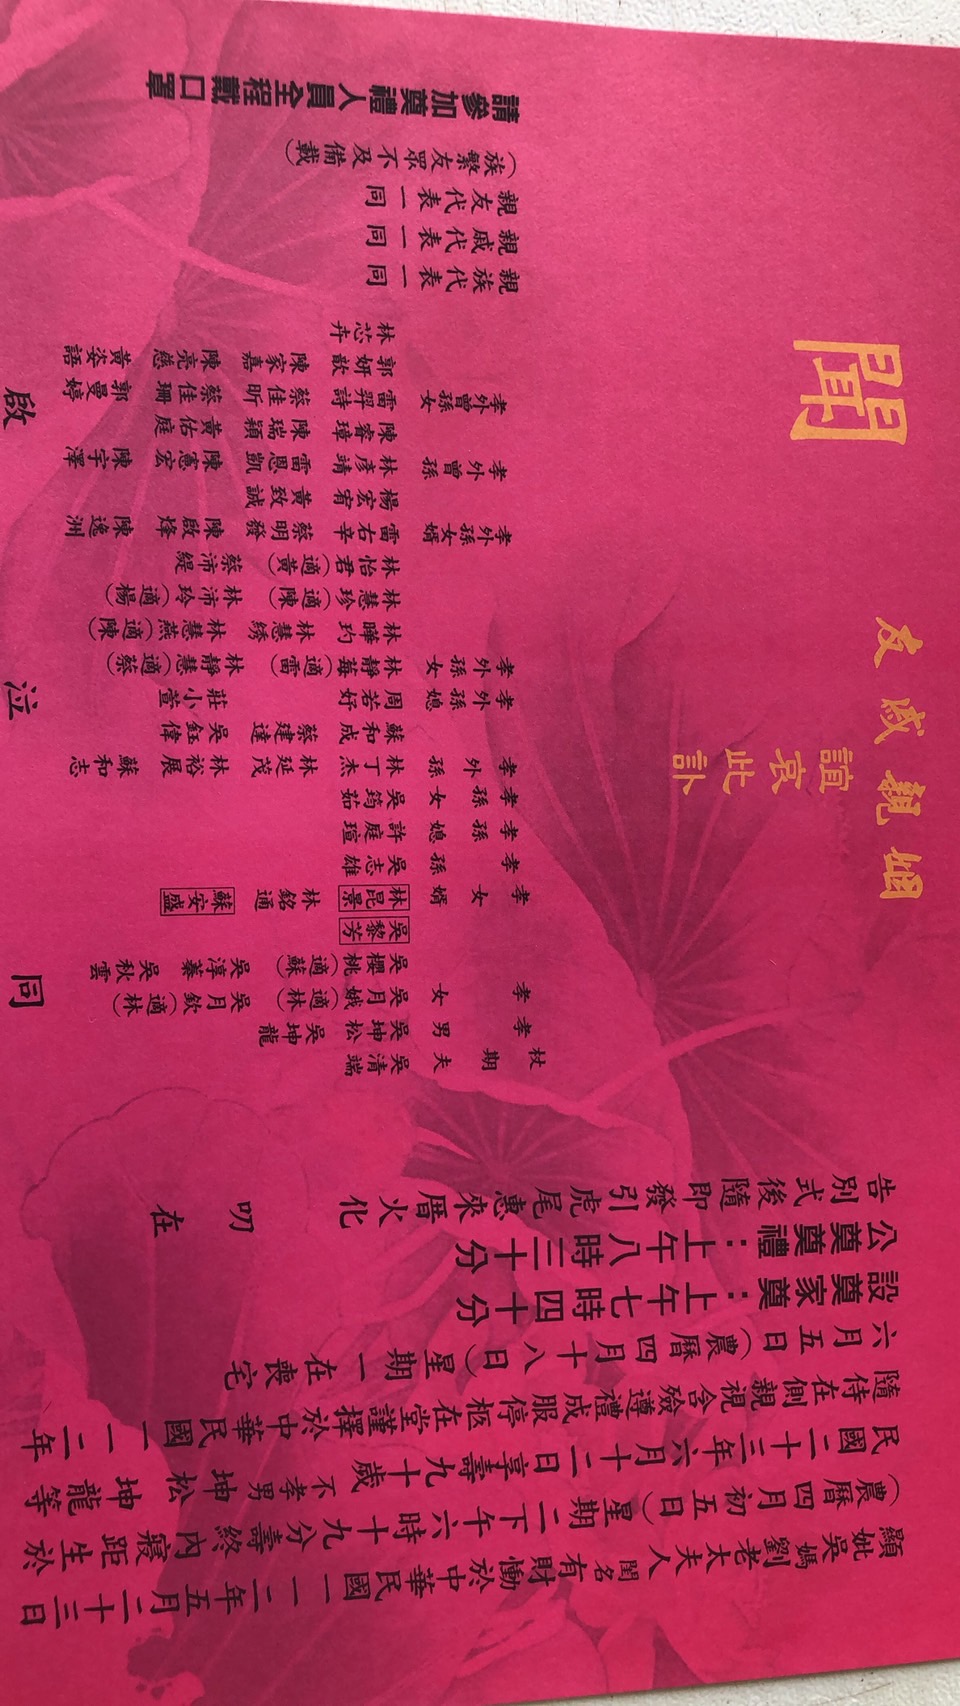 顯妣吳媽劉老太夫人閨名有財慟於中華民國一一二年五月二十三日
(農曆四月初五日)星期二下午六時十九分壽終內寢距生於
民國二十三年六月十二日享壽九十歲不孝男坤松坤龍等
隨侍在側親視含殮遵禮成服停柩在堂謹擇於中華民國一一二年
六月五日(農曆四月十八日)星期一在喪宅
設奠家奠：上午七時四十分
公奠禮：上午八時三十分
告別式後隨即發引虎尾惠來厝火化
叨在
姻親戚友
誼哀此訃
聞
杖期夫 吳清端
孝男 吳坤松 吳坤龍
孝女 吳月娥(適林) 吳月欽(適林)
吳櫻桃(適蘇) 吳淳蓁 吳秋雲
吳黎芳
孝女婿 林昆景 林銘通 蘇安盛
孝孫 吳志雄
孝孫媳 許庭瑄
孝孫女 吳筠茹
孝外孫 林丁杰 林延茂 林裕展 蘇和志
蘇和成 蔡建達 吳鈺偉
孝外孫媳 周若妤 莊小萱
孝外孫女 林靜莓(適雷) 林靜慧(適蔡)
林曄玓 林慧綉 林慧燕(適陳)
林慧珍(適陳) 林沛玲(適楊)
林怡君(適黃) 蔡沛緹
孝外孫女婿 雷右辛 蔡明發 陳啟烽 陳逸洲
楊宏宥 黃致誠
孝外曾孫 林彥靖 雷恩凱 陳憲宏 陳宇澤
陳睿璋 陳瑞穎 黃佑庭
孝外曾孫女 雷羿詩 蔡佳昕 蔡佳珊 郭曼婷
郭妍歆 陳家嘉 陳亮慈 黃姿語
林芯卉
親族代表一同
親戚代表一同
親友代表一同
(族繁友眾不及備載)
同泣啟
請參加奠禮人員全程戴口罩